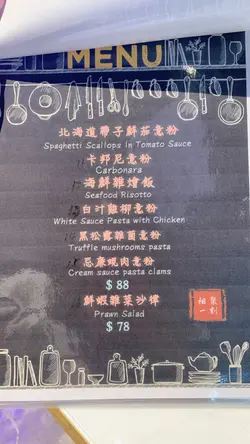 MENU
北海道帶子鮮茄意粉
Spaghetti Scallops In Tomato Sauce
卡邦尼意粉
Carbonara
海鮮雜燴飯
Seafood Risotto
白汁雞柳意粉
White Sauce Pasta with Chicken
黑松露雜菌意粉
Truffle mushrooms pasta
忌廉蜆肉意粉
Cream sauce pasta clams
$ 88
鮮蝦雜菜沙律
Prawn Salad
$ 78
相聚
一刻